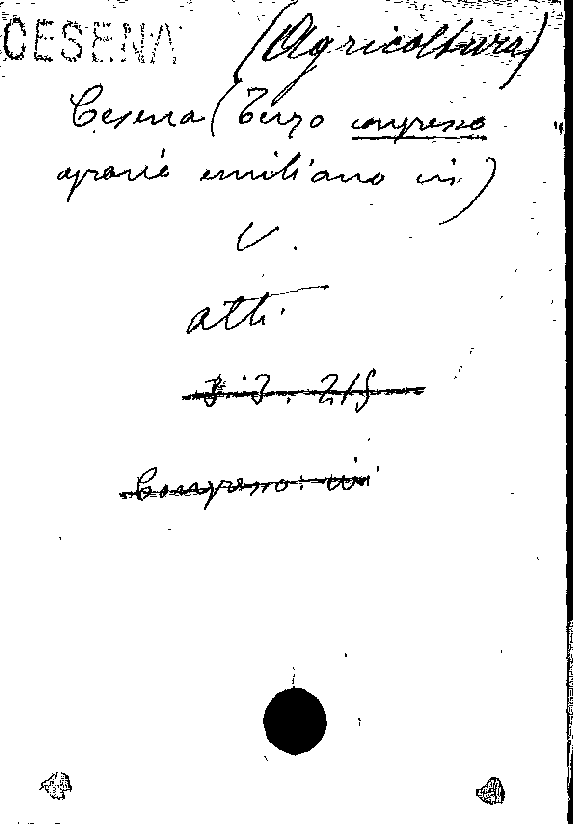 CESENA (Agricoltura)
Cesena (Terzo congresso
agrario emiliano in)
V.
atti.
Congresso. in